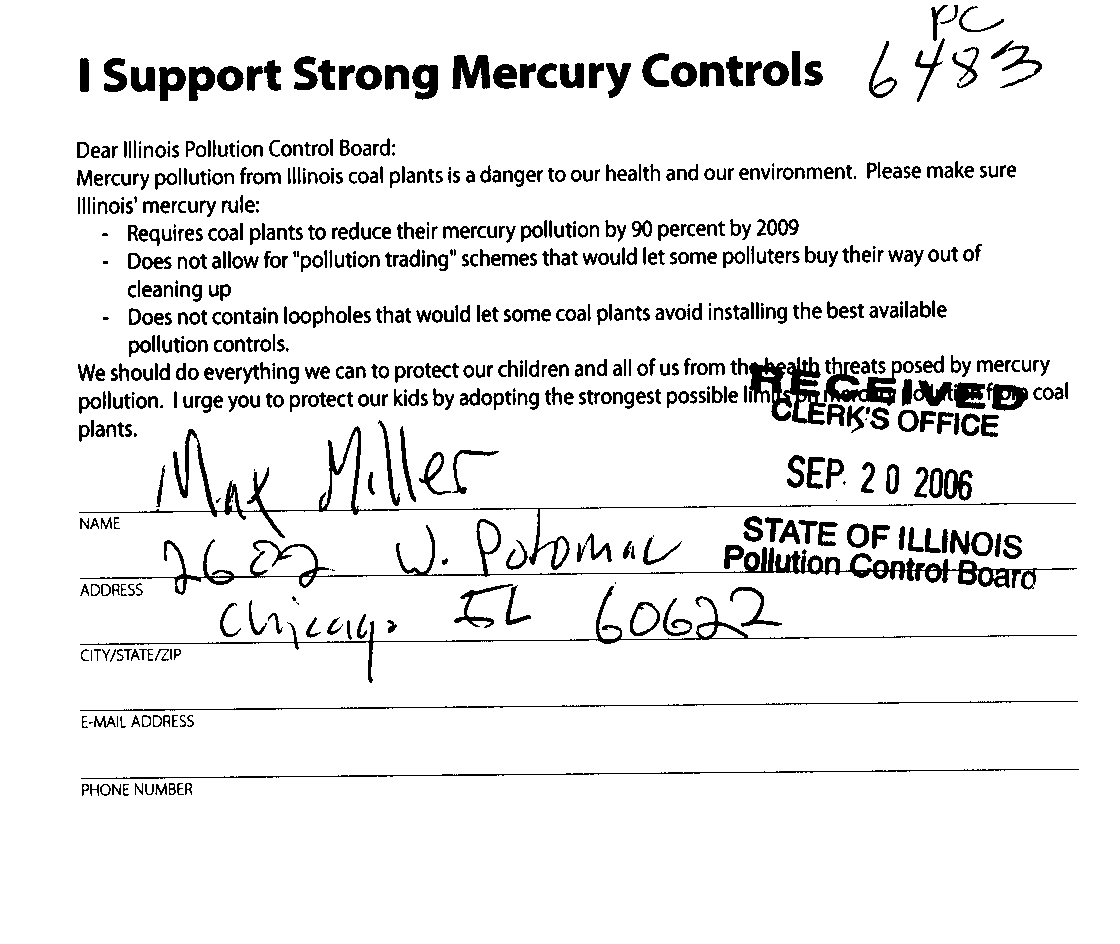 PC
6483
I Support Strong Mercury Controls
Dear Illinois Pollution Control Board:
Mercury pollution from Illinois coal plants is a danger to our health and our environment. Please make sure
Illinois' mercury rule:
- Requires coal plants to reduce their mercury pollution by 90 percent by 2009
- Does not allow for "pollution trading" schemes that would let some polluters buy their way out of
cleaning up
- Does not contain loopholes that would let some coal plants avoid installing the best available
pollution controls.
We should do everything we can to protect our children and all of us from the health threats posed by mercury
pollution. I urge you to protect our kids by adopting the strongest possible limits on mercury pollution from coal
plants.
RECEIVED
CLERK'S OFFICE
SEP. 20 2006
STATE OF ILLINOIS
Pollution Control Board
Max Miller
NAME
2622 W. Potomac
ADDRESS
Chicago IL 60622
CITY/STATE/ZIP
E-MAIL ADDRESS
PHONE NUMBER